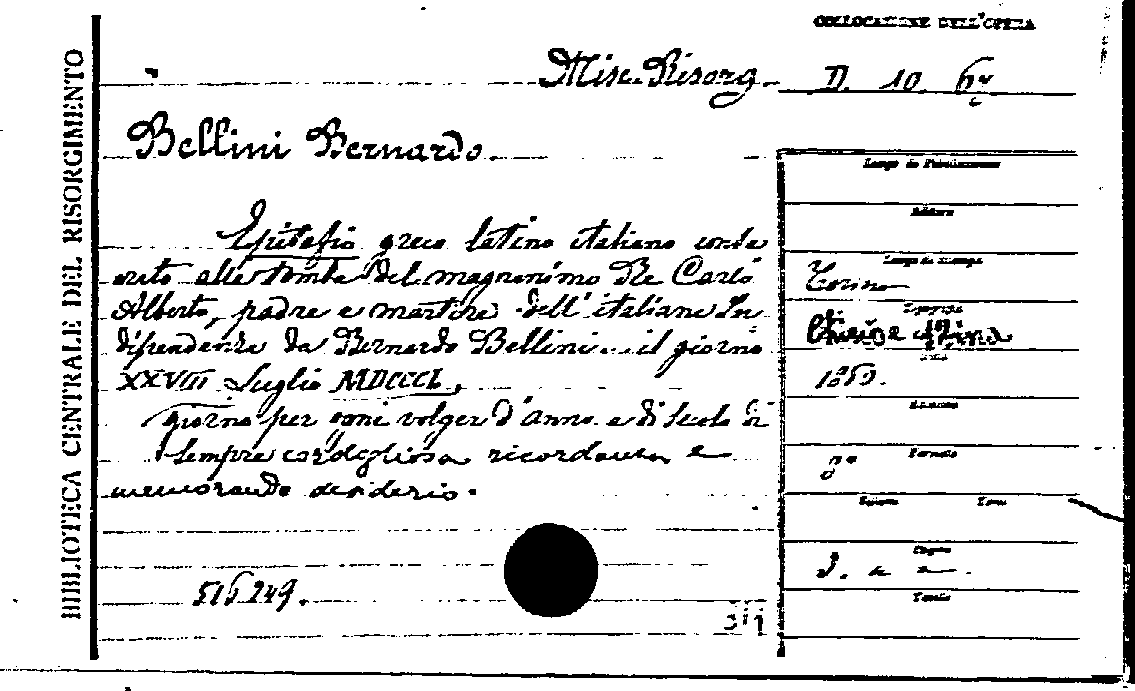 COLLOCAZIONE DELL'OPERA
Misc. Risorg. D. 10. 64
BIBLIOTECA CENTRALE DEL RISORGIMENTO
Bellini Bernardo
Luogo di Pubblicazione
Epitafio greco latino italiano
alla tomba del magnanimo Re Carlo
Alberto, padre e martire dell'italiana In
dipendenza da Bernardo Bellini... il giorno
XXVIII Luglio MDCCCL,
giorno per ogni volger d'anno e di secolo di
sempre cordogliosa ricordanza e
memorando desiderio.
Editore
Luogo di Stampa
Torino
Tipografia
Chirio e Mina
1850.
Formato
8°
Volume Tomo
Pagine
Tavole
516249.